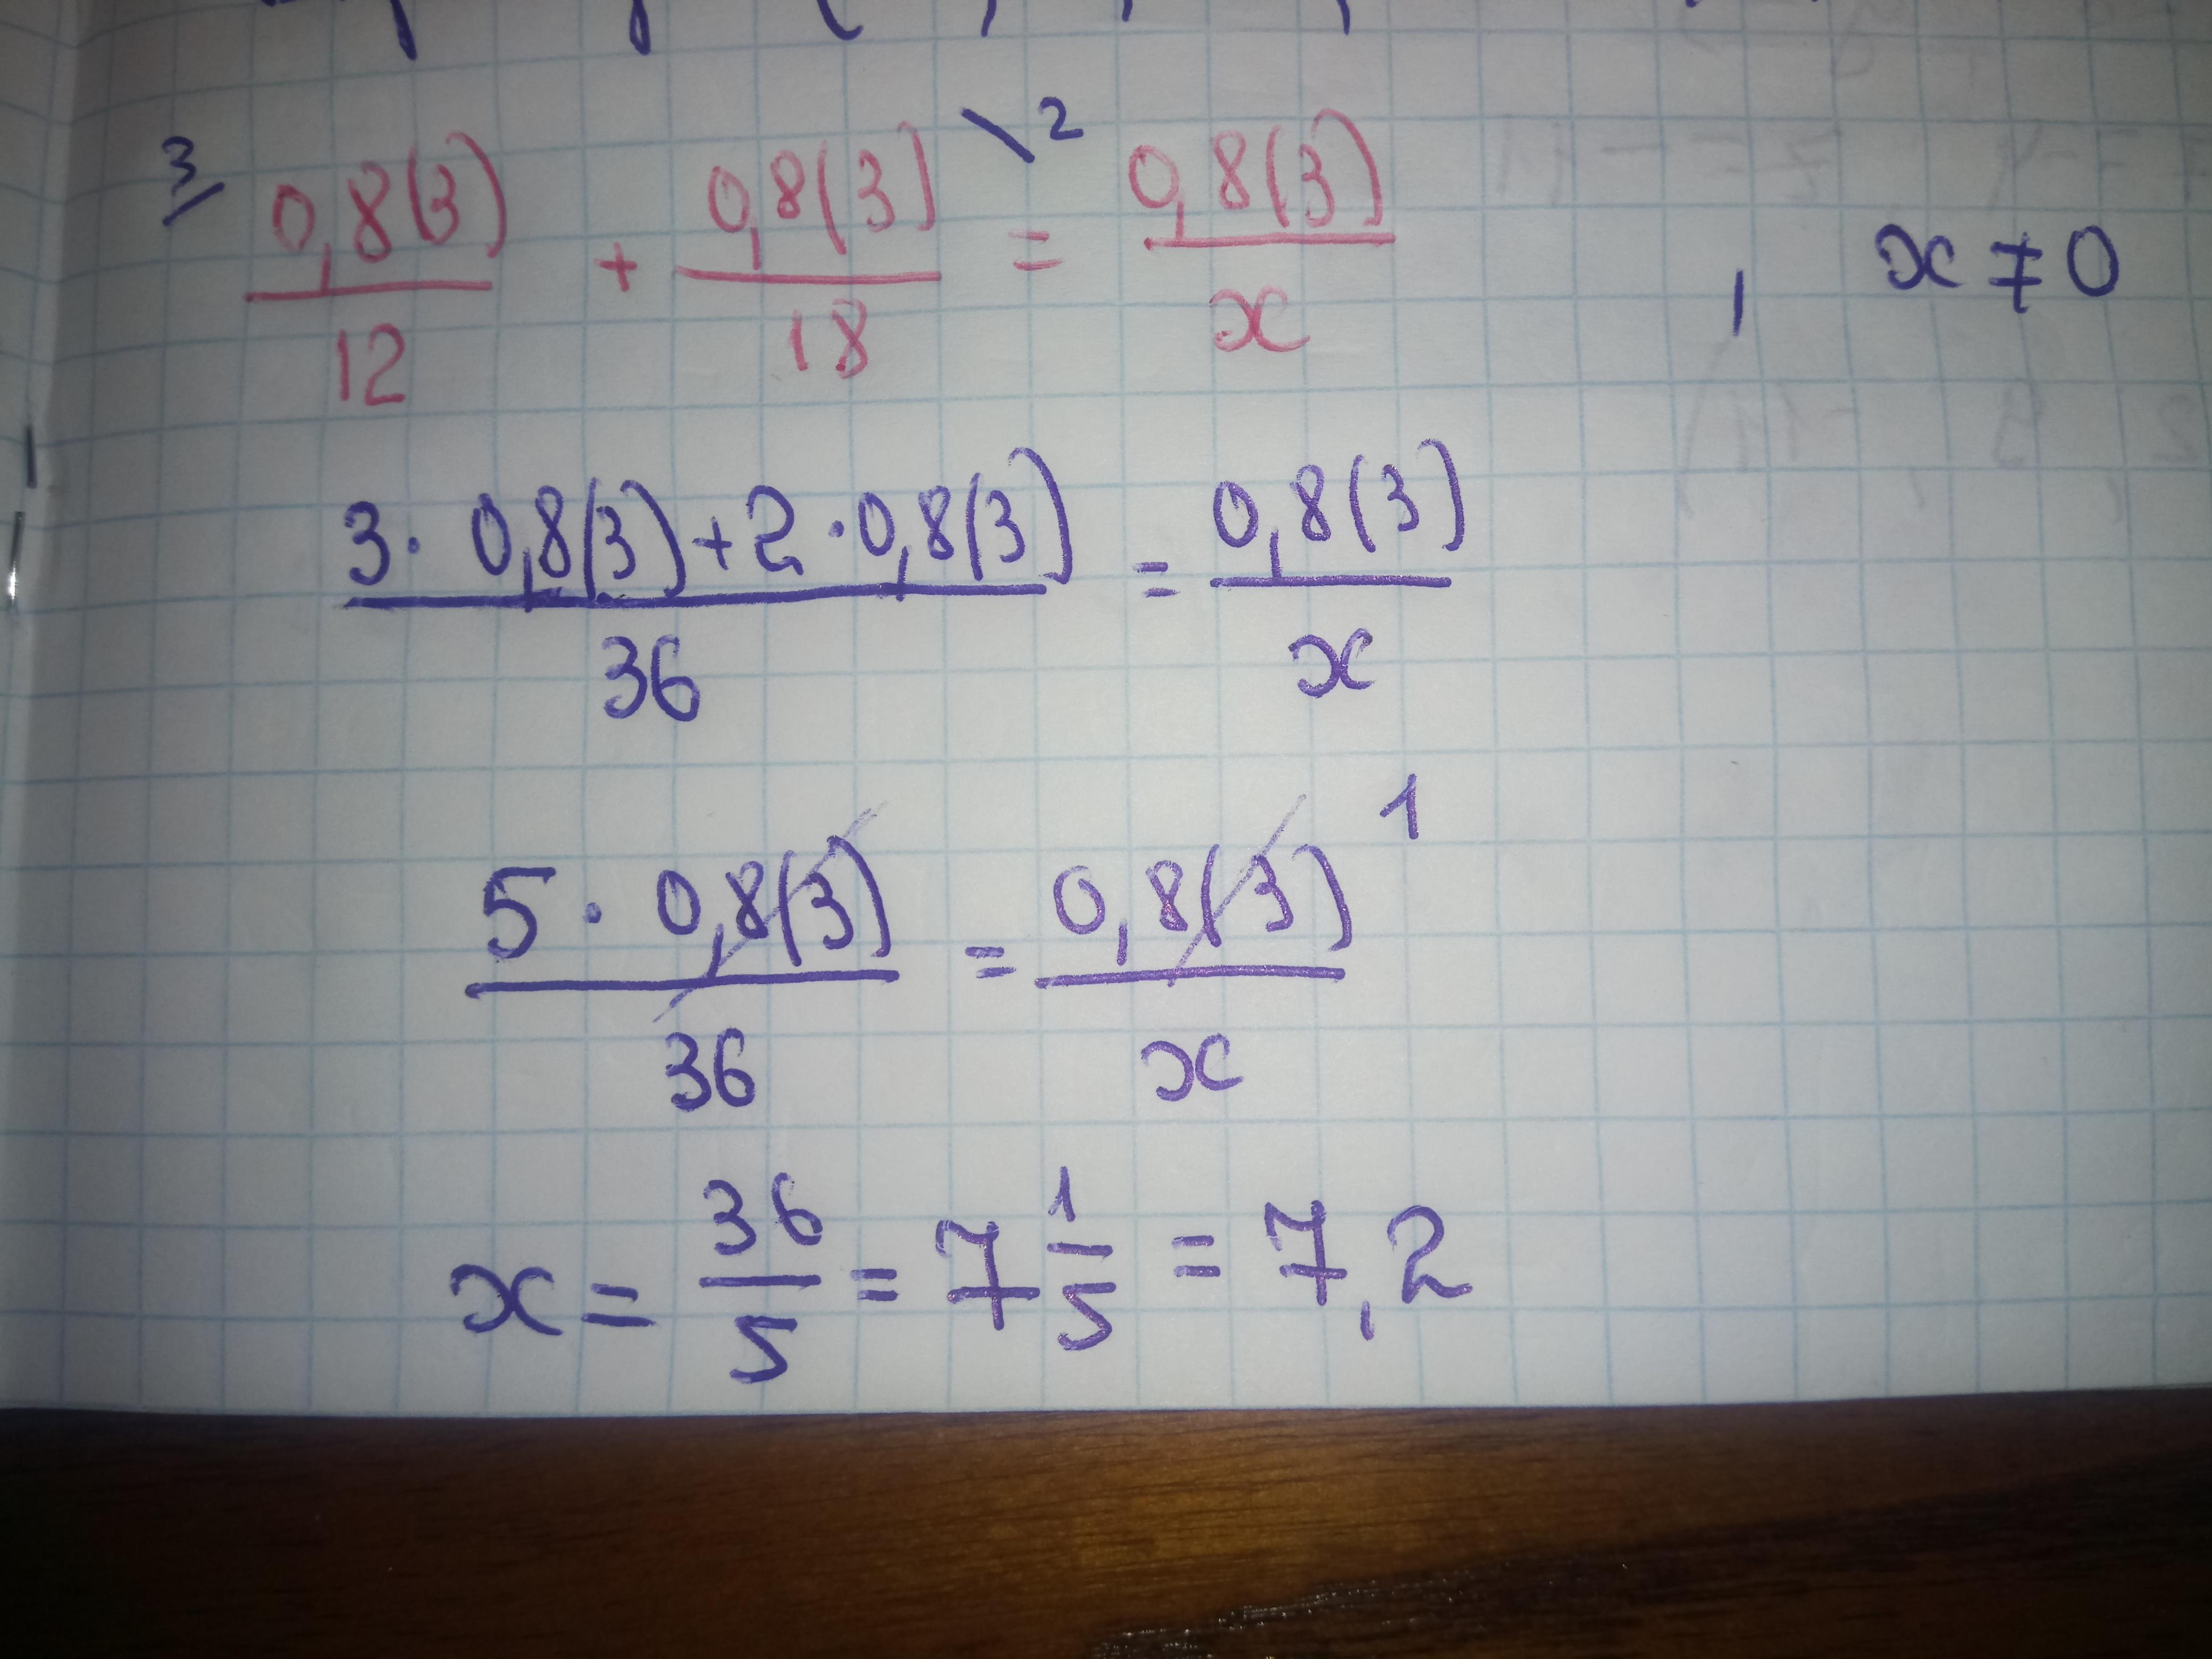 3/ 0,8(3)/12 + 0,8(3)/18 \2 = 0,8(3)/x , x ≠ 0
3·0,8(3)+2·0,8(3)/36 = 0,8(3)/x
5·0,8(3)/36 = 0,8(3)/x 1
x = 36/5 = 7 1/5 = 7,2